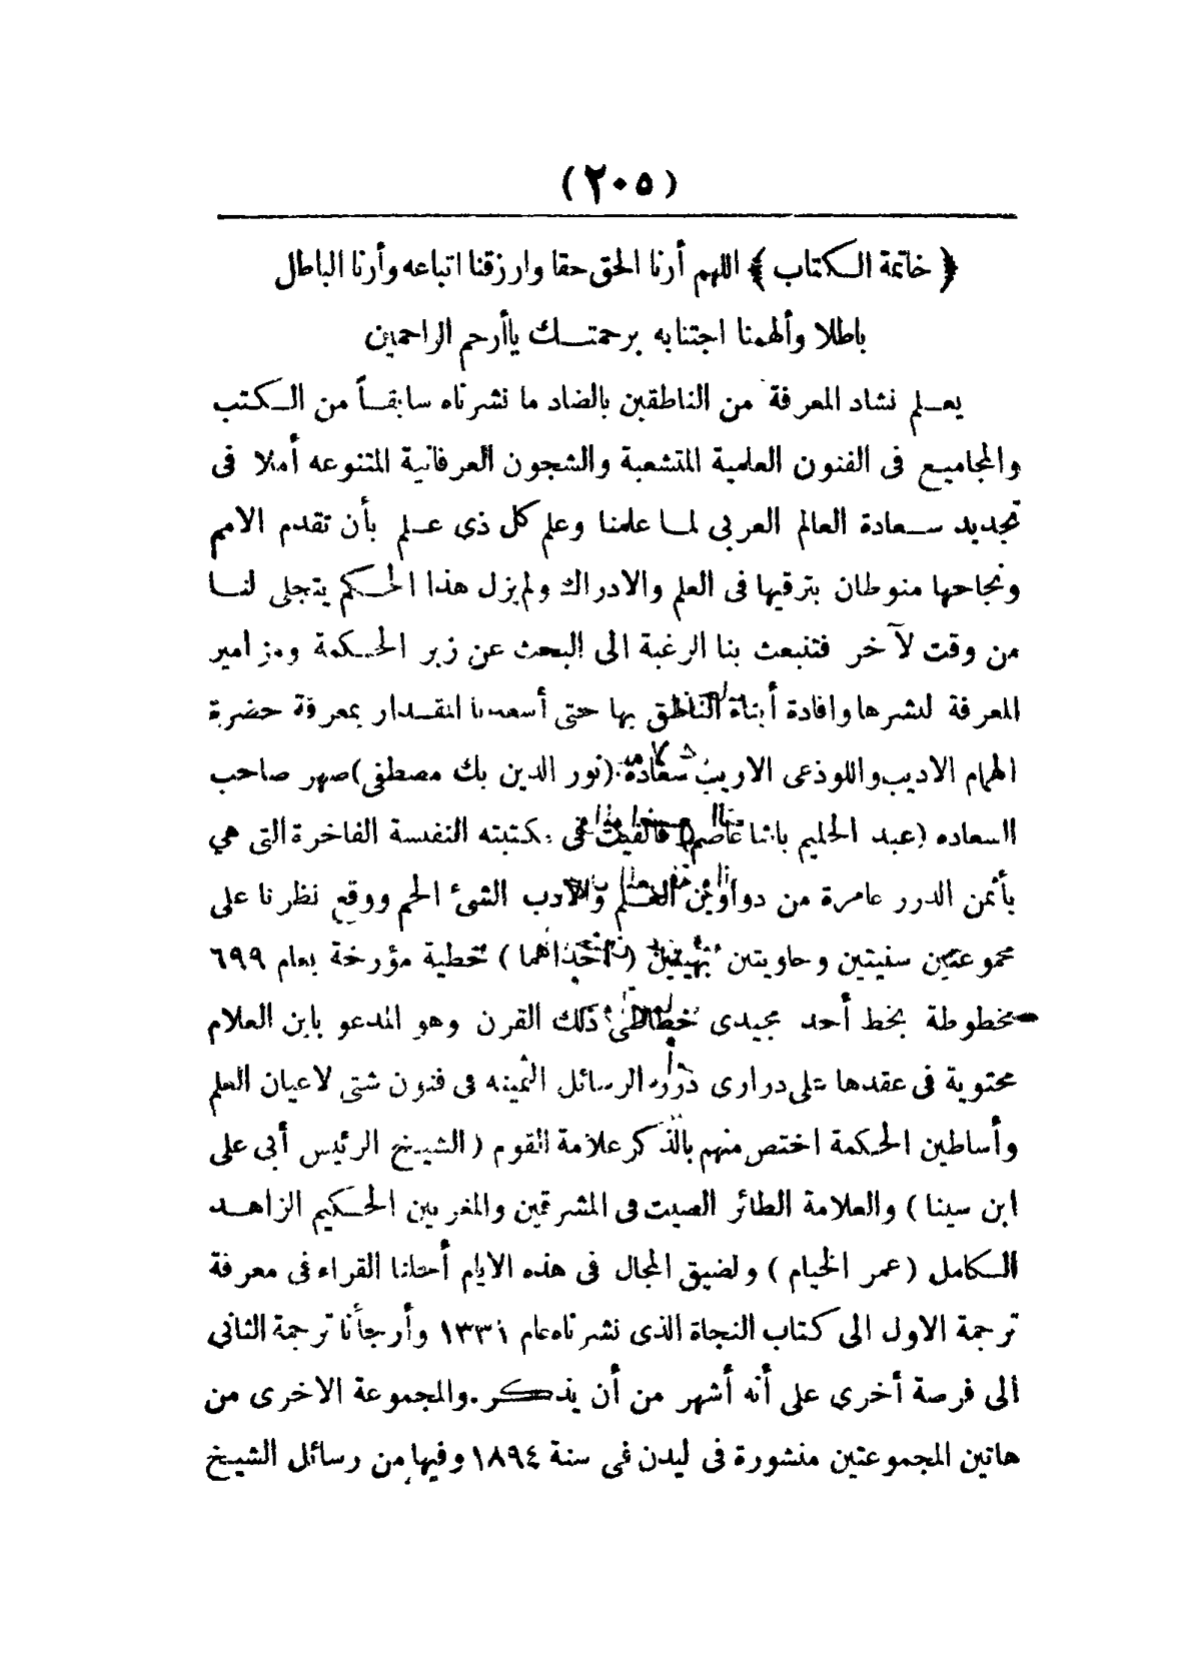 (٢٠٥)
﴿ خاتمة الكتاب ﴾ اللهم أرنا الحق حقا وارزقنا اتباعه وأرنا الباطل
باطلا وألهمنا اجتنابه برحمتك ياأرحم الراحمين
يعلم نشاد المعرفة من الناطقين بالضاد ما نشرناه سابقاً من الكتب
والمجاميع فى الفنون العلمية المتشعبة والشجون العرفانية المتنوعه أملا فى
تجديد سعادة العالم العربى لما علمنا وعلم كل ذى علم بأن تقدم الامم
ونجاحها منوطان بترقيها فى العلم والادراك ولم يزل هذا الحكم يتجلى لنا
من وقت لآخر فتنبعث بنا الرغبة الى البحث عن زبر الحكمة ومزامير
المعرفة لنشرها وافادة أبناء الناطق بها حتى أسعدنا المقدار بمعرفة حضرة
الهمام الاديب واللوذعى الاريب سعادة (نور الدين بك مصطفى) صهر صاحب
السعاده (عبد الحليم باشا عاصم) فألفيت فى مكتبته النفيسة الفاخرة التى هي
بأثمن الدرر عامرة من دواوين العلم والأدب الشئ الجم ووقع نظرنا على
مجموعتين سنيتين وحاويتين بهيتين (احداهما) خطية مؤرخة بعام ٦٩٩
مخطوطة بخط أحد مجيدى خطاطى ذلك القرن وهو المدعو بابن العلام
محتوية فى عقدها على درارى درر الرسائل الثمينه فى فنون شتى لاعيان العلم
وأساطين الحكمة اختص منهم بالذكر علامة القوم (الشيخ الرئيس أبى على
ابن سينا) والعلامة الطائر الصيت فى المشرقين والمغربين الحكيم الزاهد
الكامل (عمر الخيام) ولضيق المجال فى هذه الايام أحلنا القراء فى معرفة
ترجمة الاول الى كتاب النجاة الذى نشرناه عام ١٣٣١ وأرجأنا ترجمة الثانى
الى فرصة أخرى على أنه أشهر من أن يذكر. والمجموعة الاخرى من
هاتين المجموعتين منشورة فى ليدن فى سنة ١٨٩٤ وفيها من رسائل الشيخ